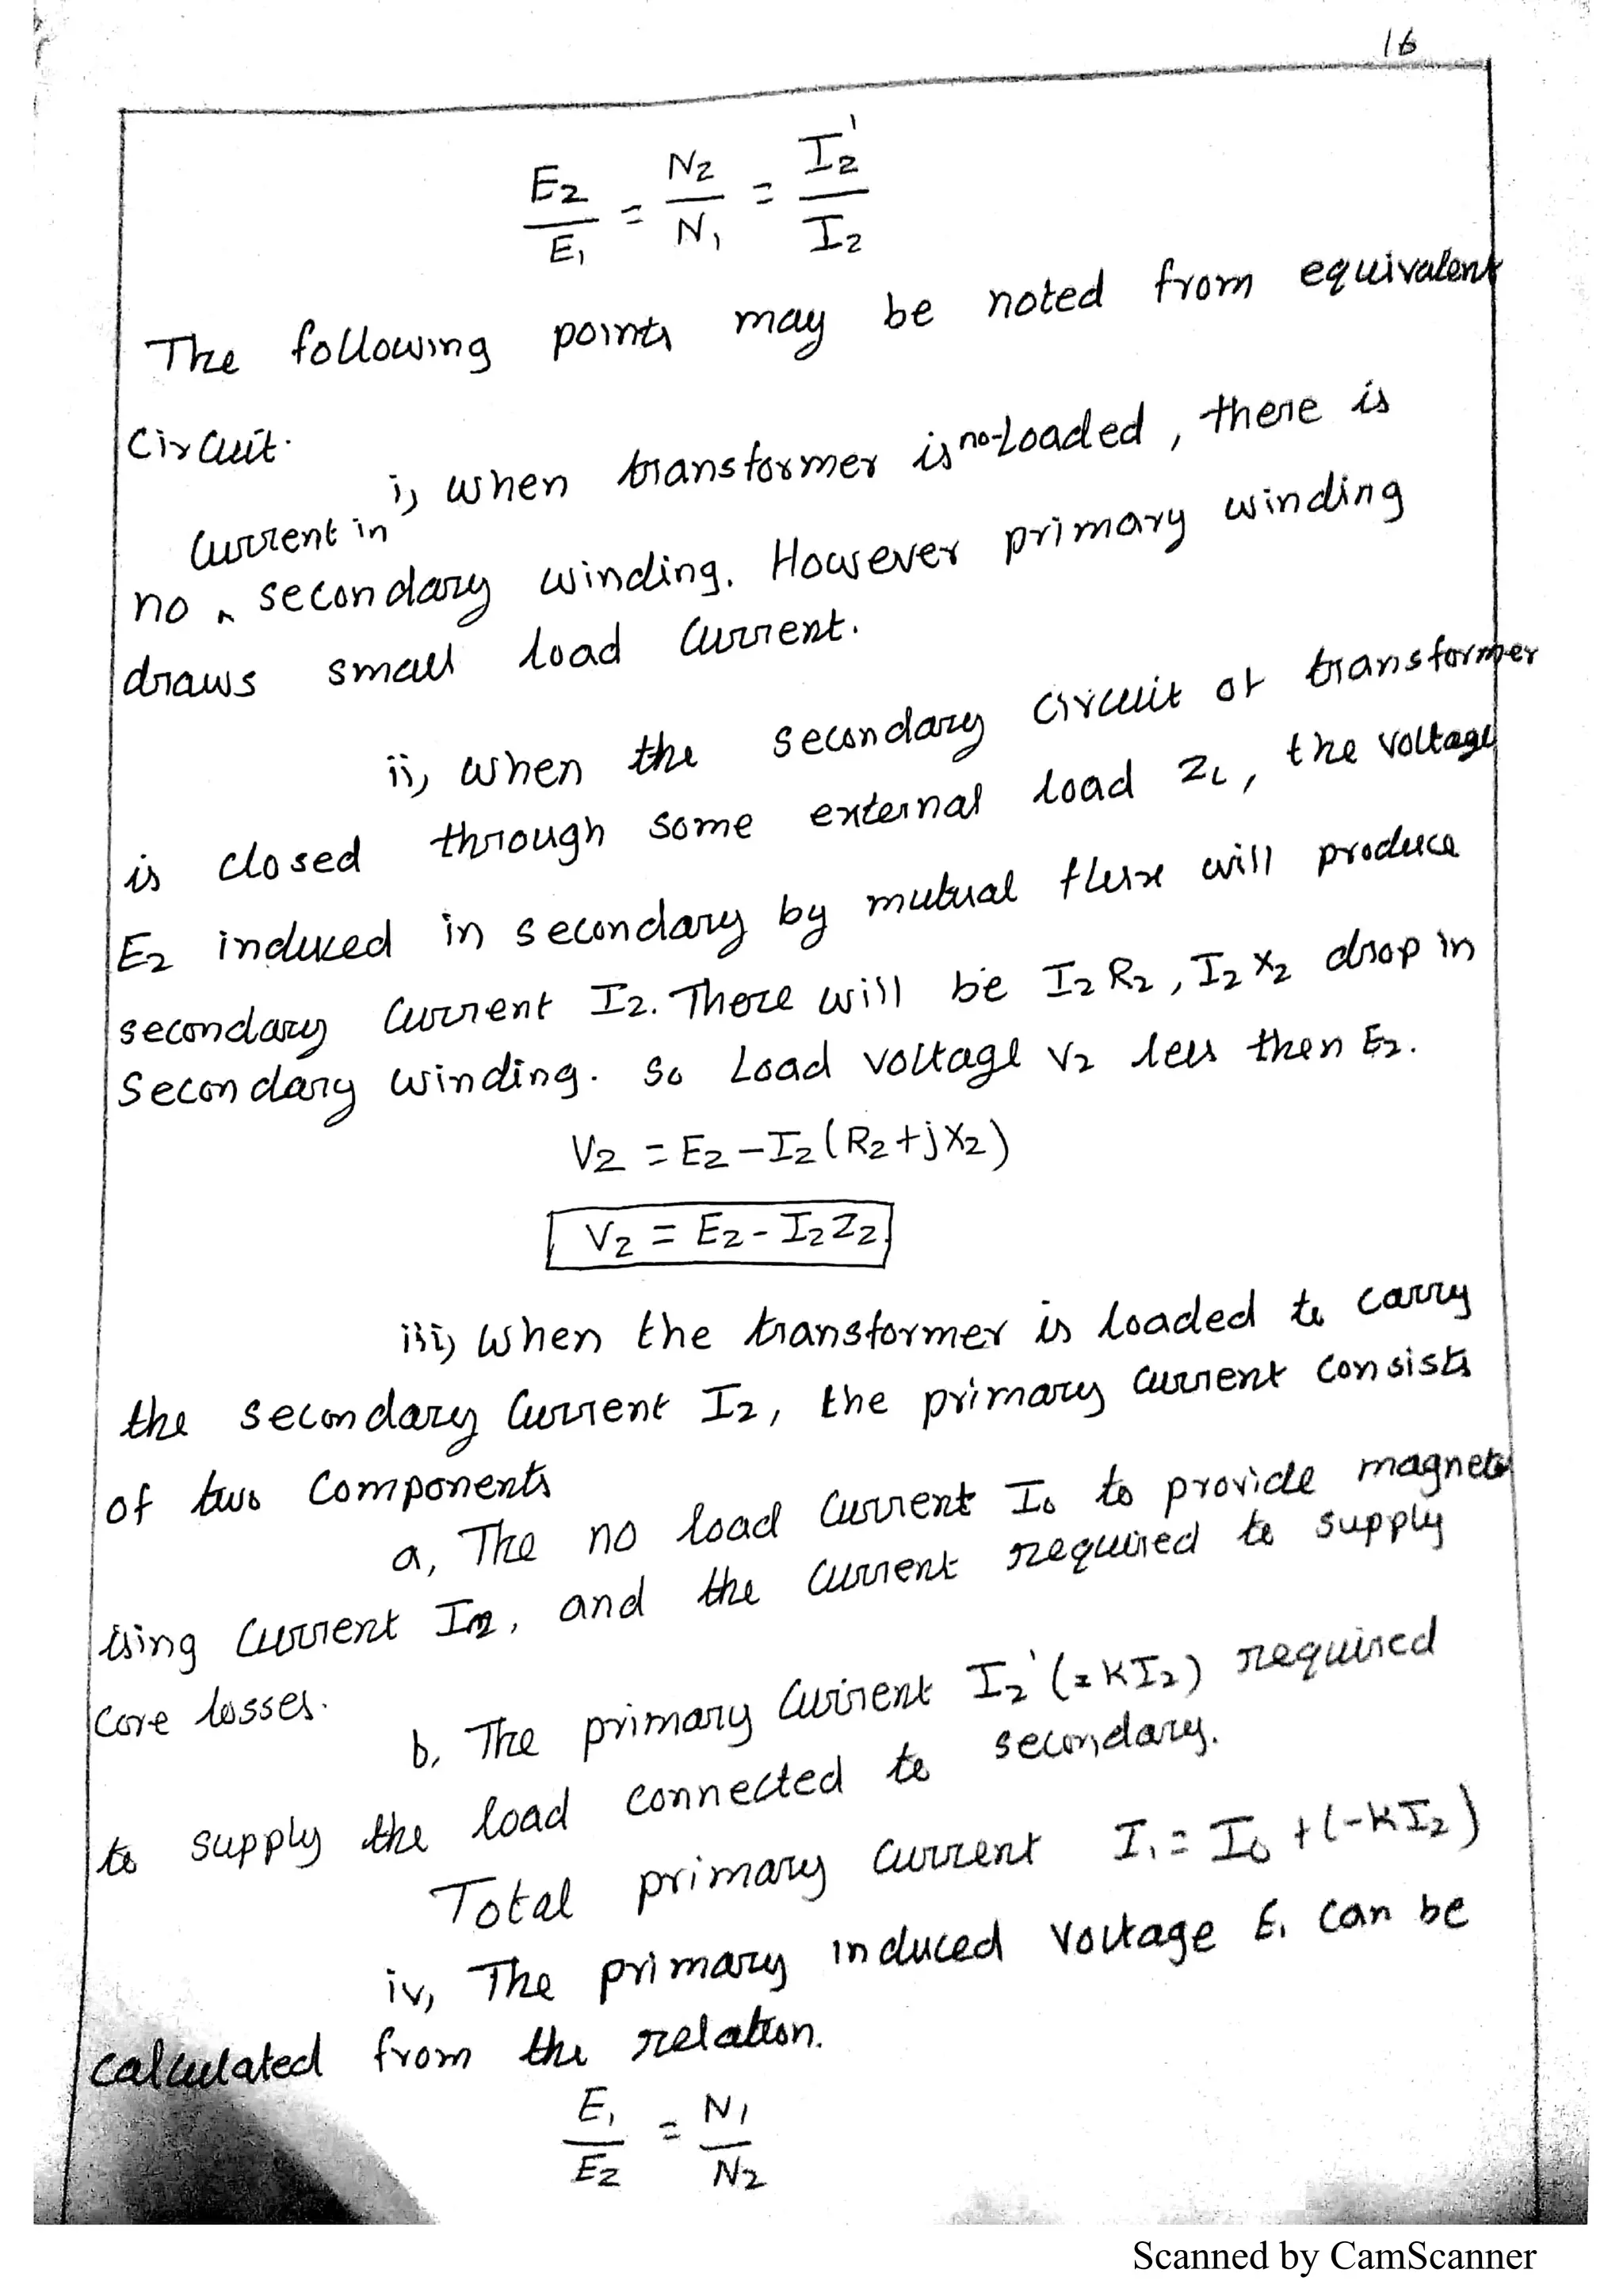 16
E2/E1 = N2/N1 = I2'/I2
The following points may be noted from equivalent
Circuit.
i, when transformer is no-loaded, there is
current in
no ^ secondary winding. However primary winding
draws small load current.
ii, when the secondary circuit of transformer
is closed through some external load ZL, the voltage
E2 induced in secondary by mutual flux will produce
secondary current I2. There will be I2 R2, I2 X2 drop in
Secondary winding. So Load voltage V2 less then E2.
V2 = E2 - I2 (R2 + jX2)
V2 = E2 - I2 Z2
iii, When the transformer is loaded to carry
the secondary current I2, the primary current consists
of two components
a, The no load current I0 to provide magnet
ising current Im, and the current required to supply
core losses.
b, The primary current I2' (= KI2) required
to supply the load connected to secondary.
Total primary current I1 = I0 + (-KI2)
iv, The primary induced voltage E1 can be
calculated from the relation.
E1/E2 = N1/N2
Scanned by CamScanner